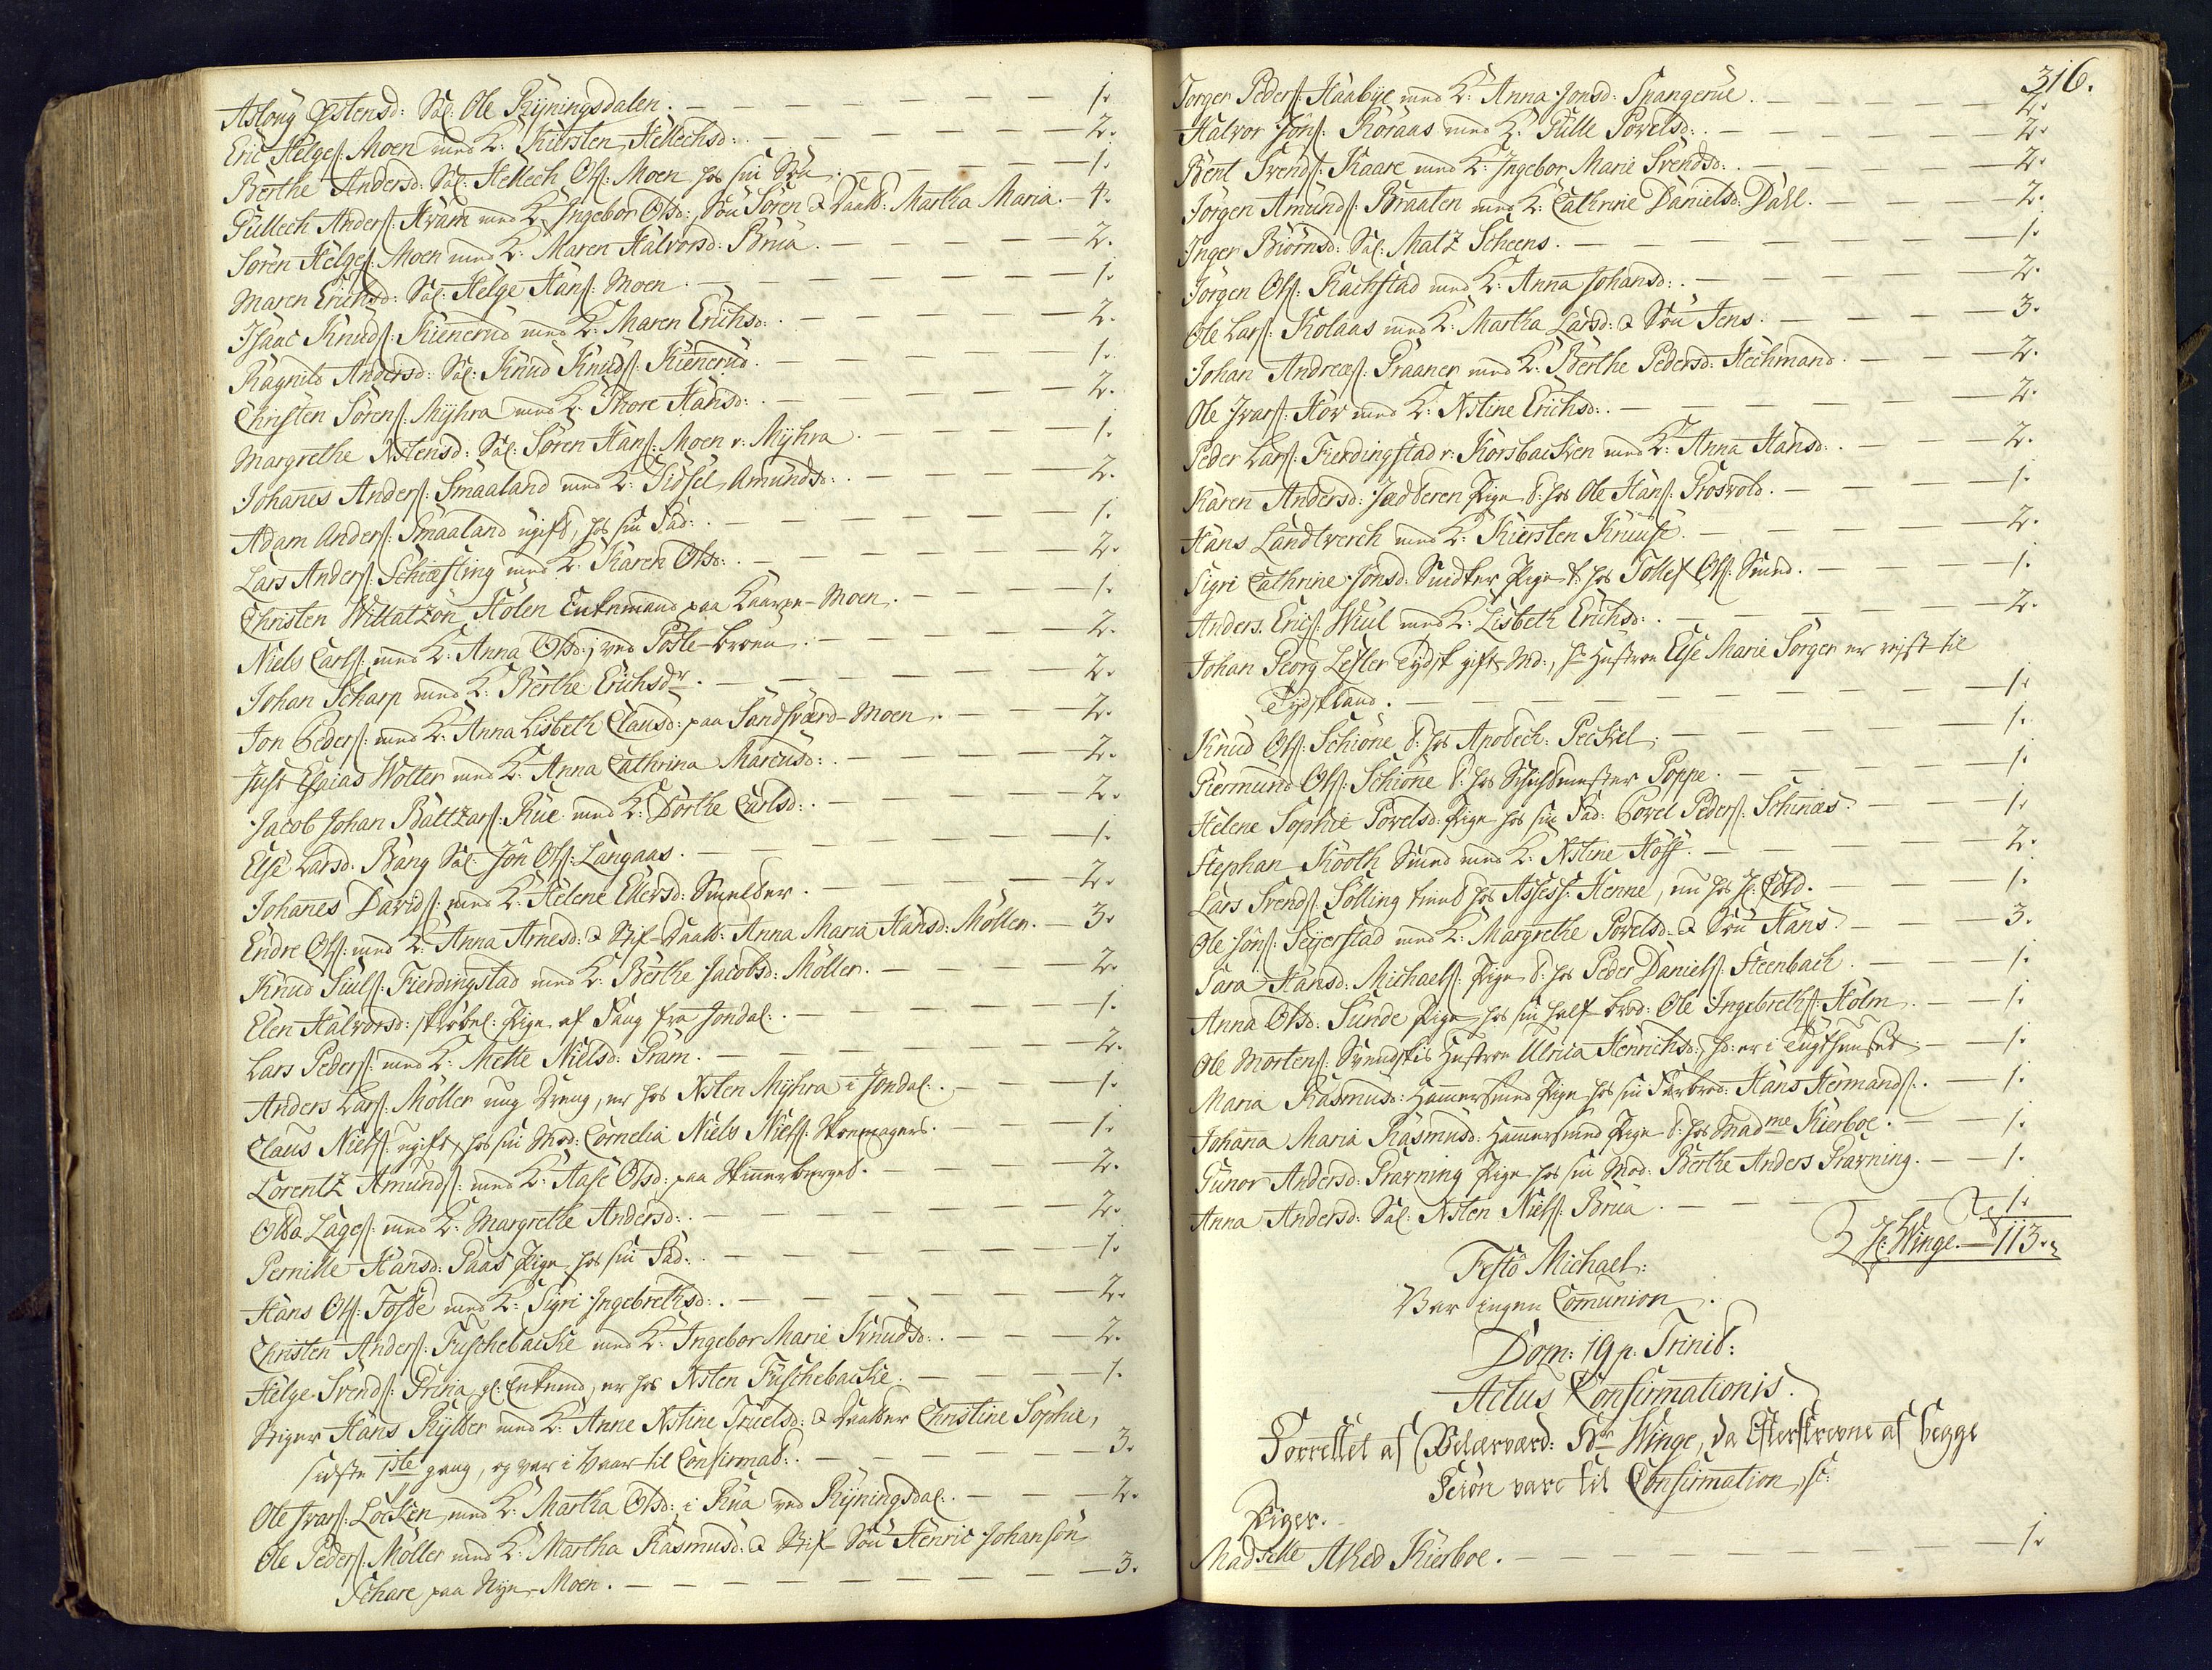 Asloug Østensd: Sal: Ole Ryningsdalen. — 1.
Eric Helges: Moen med K: Kirsten Hellechsd: — 2.
Berthe Andersd: Sal: Hellech Ols: Moen hos sin Søn. — 1.
Gullech Anders: Kram med K: Ingebor Olsd: Søn Søren & Daatt: Martha Maria. — 4.
Søren Helges: Moen med K: Maren Halvorsd: Brua. — 2.
Maren Erichsd: Sal: Helge Hans: Moen. — 1.
Isaac Knuds: Kienerud med K: Maren Erichsd: — 2.
Ragnild Andersd: Sal: Knud Knuds: Kienerud. — 1.
Christen Sørens: Myhra med K: Thore Hansd: — 2.
Margrethe Nstensd: Sal: Søren Hans: Moen v: Myhra. — 1.
Johanes Anders: Smaaland med K: Sidsel Amundsd: — 2.
Adam Anders: Smaaland ugift, hos sin Fad: — 1.
Lars Anders: Schiesting med K: Karen Olsd: — 2.
Christen Willatzøn Holen Enkemand paa Laagen-Moen. — 1.
Niels Carls: med K: Anna Olsd: ved Pöste-broen. — 2.
Johan Scharp med K: Berthe Erichsdr. — 2.
Jon Peders: med K: Anna Lisbeth Clausd: paa Sandsværd-Moen. — 2.
Just Esaias Wolter med K: Anna Cathrina Marcusd: — 2.
Jacob Johan Baltzars: Rue med K: Dorthe Carlsd: — 2.
Else Larsd: Bang Sal: Jon Ols: Langaas. — 1.
Johanes Davids: med K: Helene Ellersd: Smelter. — 2.
Endre Ols: med K: Anna Arnesd: & Stif-Daatt: Anna Maria Hansd: Møllen. — 3.
Knud Siuls: Fierdingstad med K: Berthe Jacobsd: Møller. — 2.
Elen Halvorsd: skrøbel: Pige af Saug fra Jondal: — 1.
Lars Peders: med K: Mette Nielsd: Gram. — 2.
Anders Lars: Møller ung Dreng, er hos Nsten Myhra i Jondal. — 1.
Claus Niels: ugift, hos sin Mod: Cornelia Niels Niels: Skoemagers. — 1.
Lorentz Amunds: med K: Aase Olsd: paa Skinnerberget. — 2.
Olla Lages: med K: Margrethe Andersd: — 2.
Pernille Hansd: Paas Pige hos sin Fad: — 1.
Hans Ols: Tofte med K: Sigri Ingebrethsd: — 2.
Christen Anders: Fuschebacke med K: Ingebor Marie Knudsd: — 2.
Helge Svends: Prina gl: Enkemd, er hos Nsten Fuschebacke. — 1.
Stiger Hans Kylter med K: Anne Nstine Truelsd: & Daatter Christine Sophie,
sidste 1ste gang, og var i Vaar til Confirmat: — 3.
Ole Ivars: Locken med K: Martha Olsd: i Rua ved Ryningsdal. — 2.
Ole Peders: Møller med K: Martha Rasmusd: & Stif-Søn Henric Johansøn
Schare paa Nye-Moen. — 3.
316.
Torger Peders: Haabye med K: Anna Jonsd: Spangerue. — 2.
Halvor Jons: Roraas med K: Gulle Povelsd: — 2.
Bent Svends: Kaare med K: Ingebor Marie Svendsd: — 2.
Jørgen Amunds: Braaten med K: Cathrine Danielsd: Dahl. — 2.
Inger Biørnsd: Sal: Matz Scheens. — 1.
Jørgen Ols: Rachstad med K: Anna Johansd: — 2.
Ole Lars: Kolaas med K: Martha Larsd: & Søn Jens. — 3.
Johan Andreæs: Praaner med K: Berthe Pedersd: Hechmand. — 2.
Ole Ivars: Hov med K: Nstine Erichsd: — 2.
Peder Lars: Fierdingstad v: Korsbacken med K: Anna Hansd: — 2.
Karen Andersd: Jædderen Pige t: hos Ole Hans: Prosvold. — 1.
Hans Landtverch med K: Kiersten Kruuse. — 2.
Sigri Cathrine Jonsd: Snidker Pige t: hos Tollef Ols: Smed. — 1.
Anders Erics: Wiul med K: Lisbeth Erichsd: — 2.
Johan Georg Lesler Tydsk gift Md:, hs Hustroe Else Marie Sorger er reist til
Tydskland. — 1.
Knud Ols: Schione t: hos Apothech: Peckel. — 1.
Giermund Ols: Schione t: hos Schichtmester Poppe. — 1.
Helene Sophie Povelsd: Pige hos sin Fad: Povel Peders: Schinæs: — 1.
Stephan Kooth Smed med K: Nstine Hoff. — 2.
Lars Svends: Solling tient hos Assess: Henne, nu hos Hr: Cold. — 1.
Ole Jons: Seyerstad med K: Margrethe Povelsd: & Søn Hans: — 3.
Sara Hansd: Michaels: Pige t: hos Peder Daniels: Steenbach. — 1.
Anna Olsd: Sunde Pige hos sin half-brod: Ole Ingebreths: Holm. — 1.
Ole Mortens: Svendskes Hustroe Ulrica Henrichsd:, hd: er i Tugthuuset. — 1.
Maria Rasmusd: Hammersmed Pige hos sin Farbrod: Hans Hermands: — 1.
Johanna Maria Rasmusd: Hammersmed Pige t: hos Madme Kierboe. — 1.
Gunor Andersd: Gravning Pige hos sin Mod: Berthe Anders Gravning. — 1.
Anna Andersd: Sal: Nsten Niels: Brua. — 1.
Hr: Winge. — 113.
Festo Michael:
Var ingen Comunion.
Dom: 19 p: Trinit:
Actus Confirmationis.
Forrettet af Velærværd: Hr Winge, da Efterskrevne af begge
Kiøn vare til Confirmation, sc:
Piger.
Madselle Ahed Kierboe. — 1.